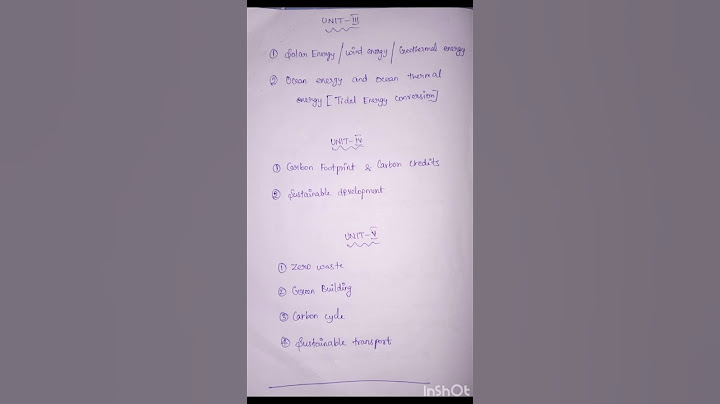 UNIT-III
① Solar Energy / wind energy / Geothermal energy
② Ocean energy and ocean thermal
energy [Tidal Energy conversion]
UNIT-IV
① Carbon Footprint & Carbon Credits
② Sustainable development
UNIT-V
① Zero waste
② Green Building
③ Carbon cycle
④ Sustainable transport
InShOt